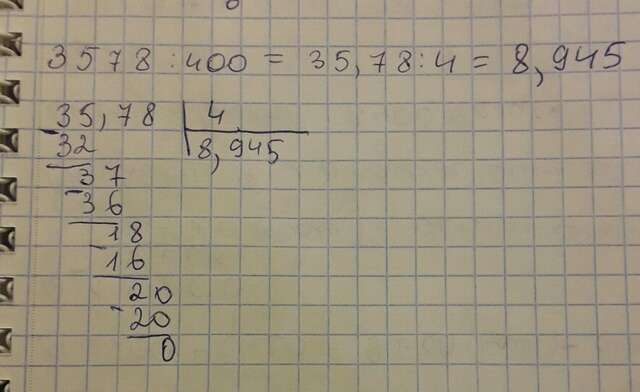 3578 : 400 = 35,78 : 4 = 8,945
35,78 | 4
- 32 | 8,945
37
- 36
18
- 16
20
- 20
0